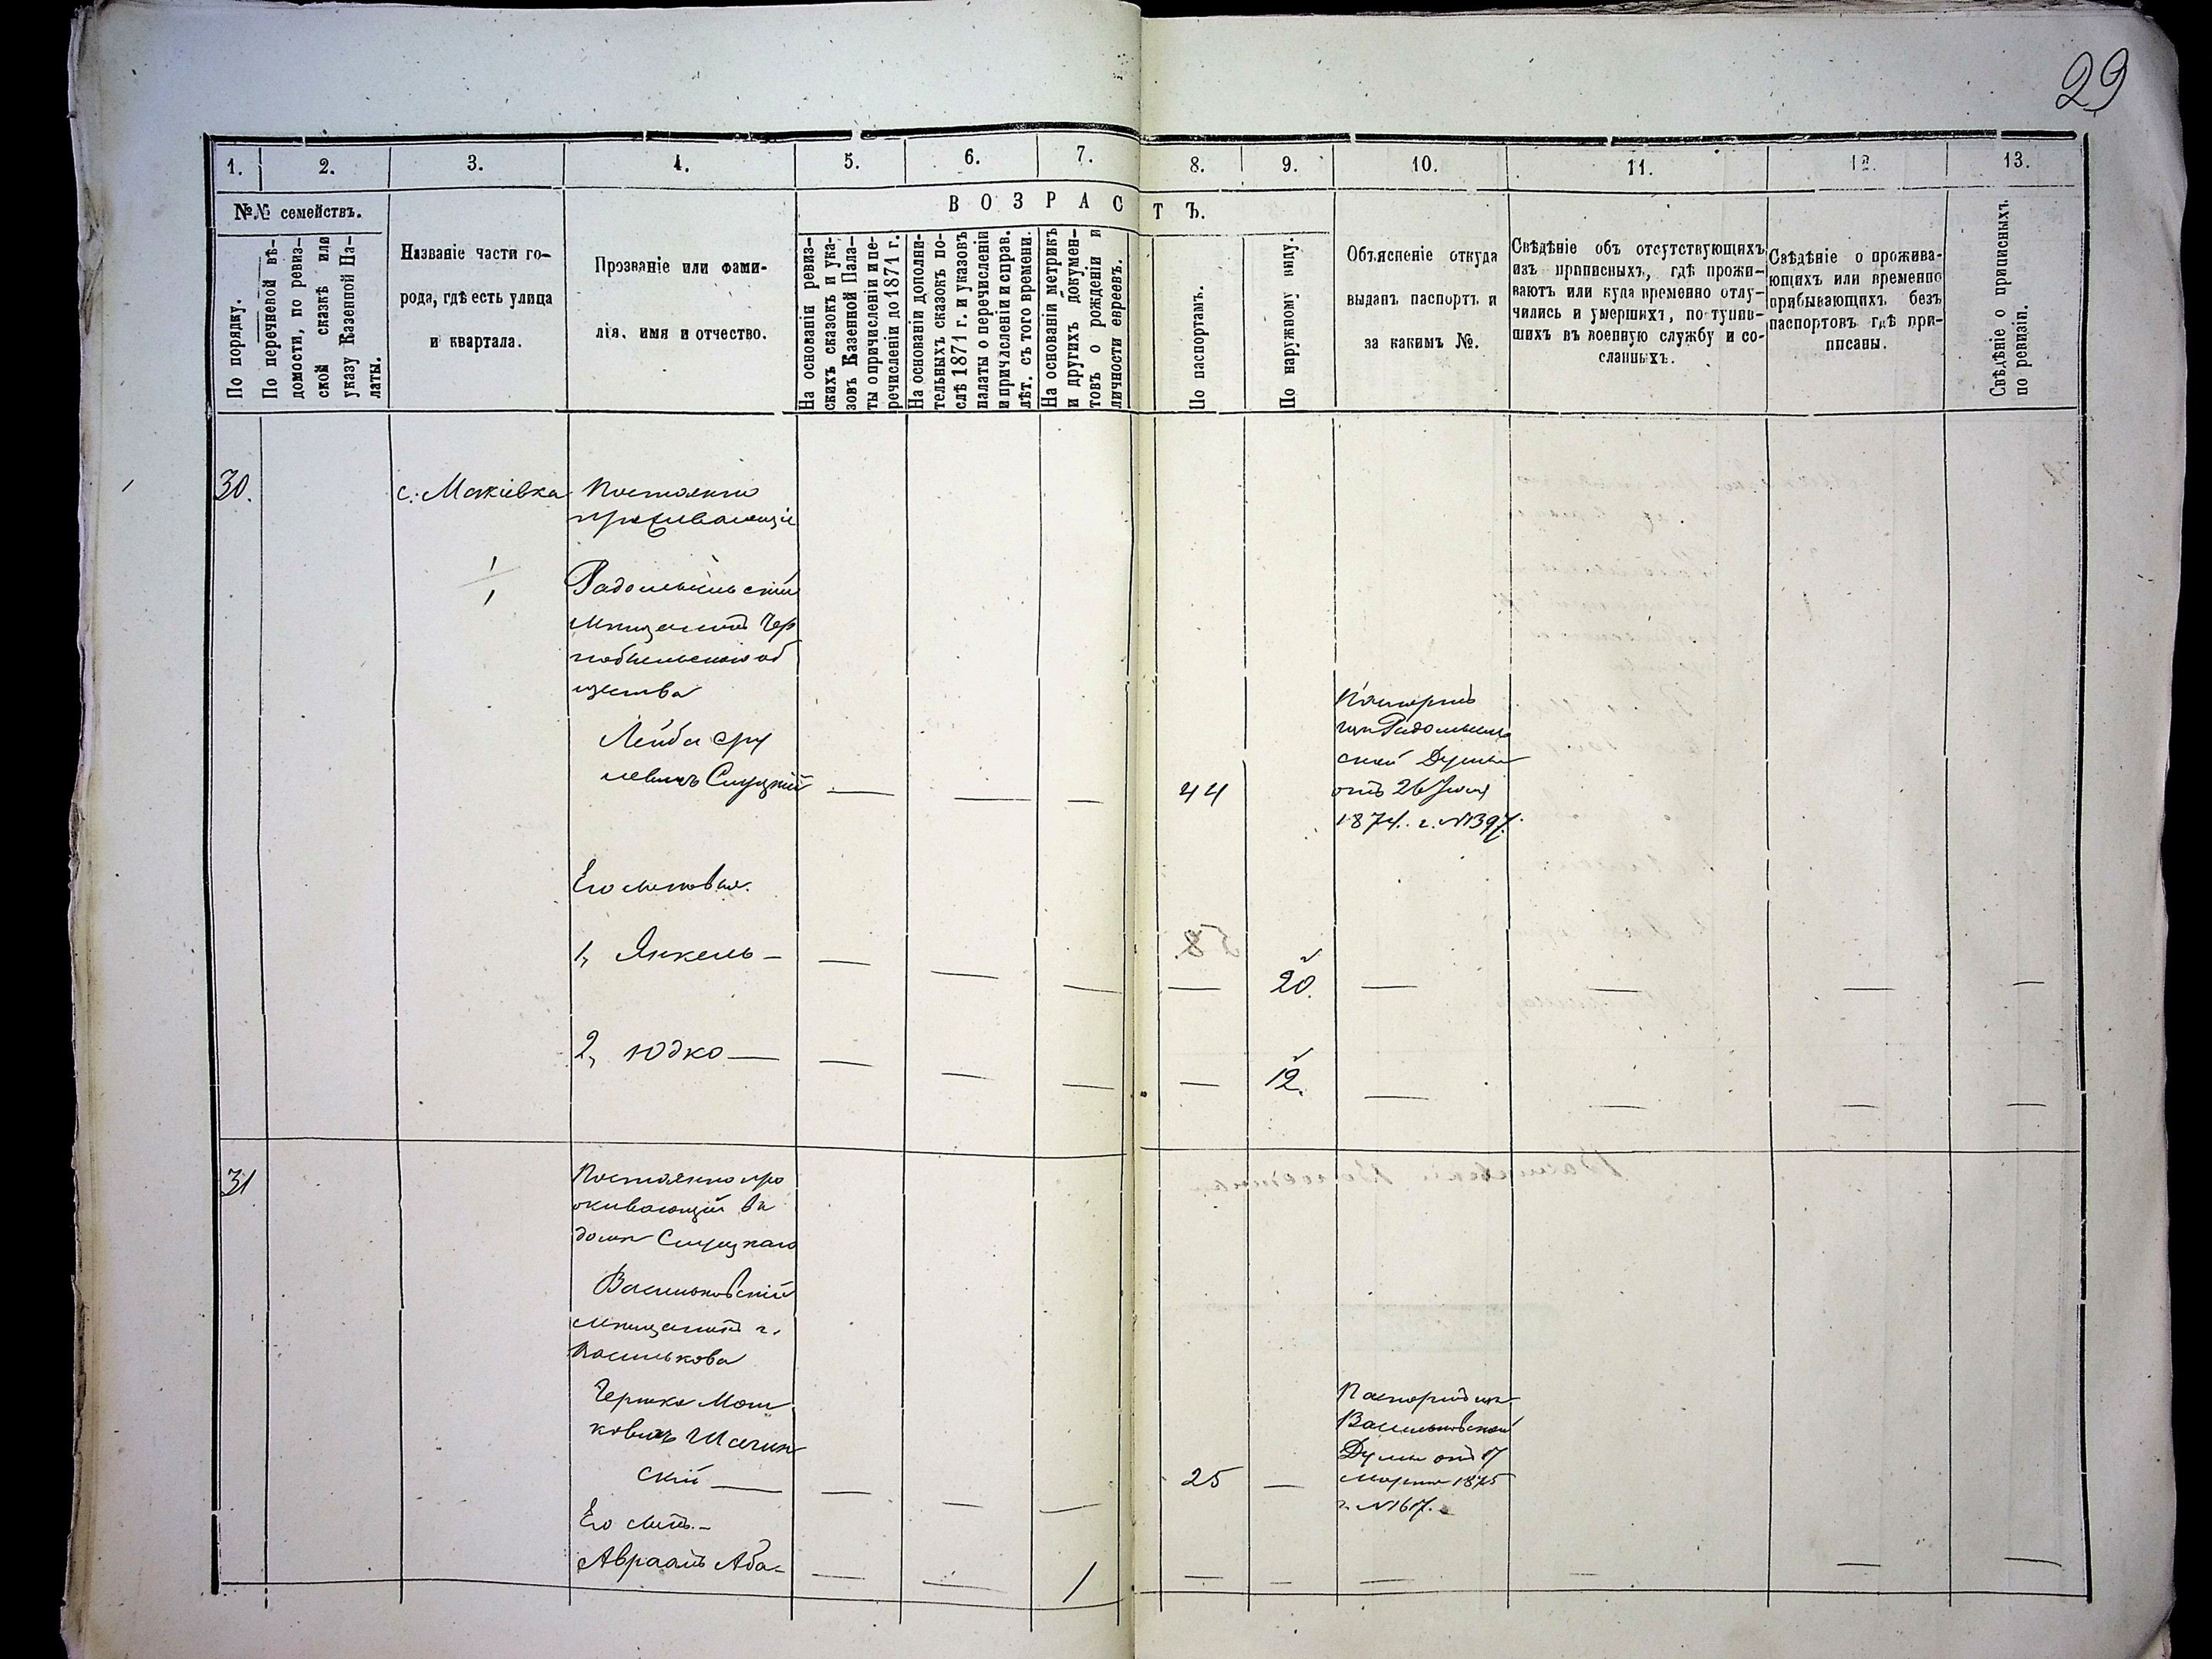 29
1. 2. 3. 4. 5. 6. 7. 8. 9. 10. 11. 12. 13.
№№ семействъ.
ВОЗРАСТЪ.
По порядку.
По перечневой вѣ-
домости, по ревиз-
ской сказкѣ или
указу Казенной Па-
латы.
Названіе части го-
рода, гдѣ есть улица
и квартала.
Прозваніе или фами-
лія, имя и отчество.
На основаніи ревиз-
скихъ сказокъ и ука-
зовъ Казенной Пала-
ты о причисленіи и пе-
речисленіи до 1871 г.
На основаніи дополни-
тельныхъ сказокъ по-
слѣ 1871 г. и указовъ
палаты о перечисленіи
и причисленіи и справ.
лѣт. съ того времени.
На основаніи метрикъ
и другихъ докумен-
товъ о рожденіи и
личности евреевъ.
По паспортамъ.
По наружному виду.
Объясненіе откуда
выданъ паспортъ и
за какимъ №.
Свѣдѣніе объ отсутствующихъ
изъ приписныхъ, гдѣ прожи-
ваютъ или куда временно отлу-
чились и умершихъ, поступив-
шихъ въ военную службу и со-
сланныхъ.
Свѣдѣніе о прожива-
ющихъ или временно
прибывающихъ безъ
паспортовъ гдѣ при-
писаны.
Свѣдѣніе о приписныхъ
по ревизіи.
30. с. Макіевка Постоянно
проживающіе
1
1
Радомысльскій
мѣщанинъ Чер
нобыльскаго об
щества
Лейба Сру
левичъ Слуцкій — — — 44
Паспортъ
изъ Радомысль
ской Думы
отъ 26 Іюля
1874. г. №1397.
Его сыновья.
1, Янкель — — — — — 20. — — — —
2, Юдко — — — — — 12. — — — —
31 Постоянно про
живающій въ
домѣ Слуцкаго
Васильковскій
мѣщанинъ г.
Василькова
Гершко Мош
ковичъ
скій — — — — 25 —
Паспортъ изъ
Васильковской
Думы отъ 17
марта 1875
г. №1617.
Его сынъ. —
Авраамъ Аба- — — 1 — — — — — —